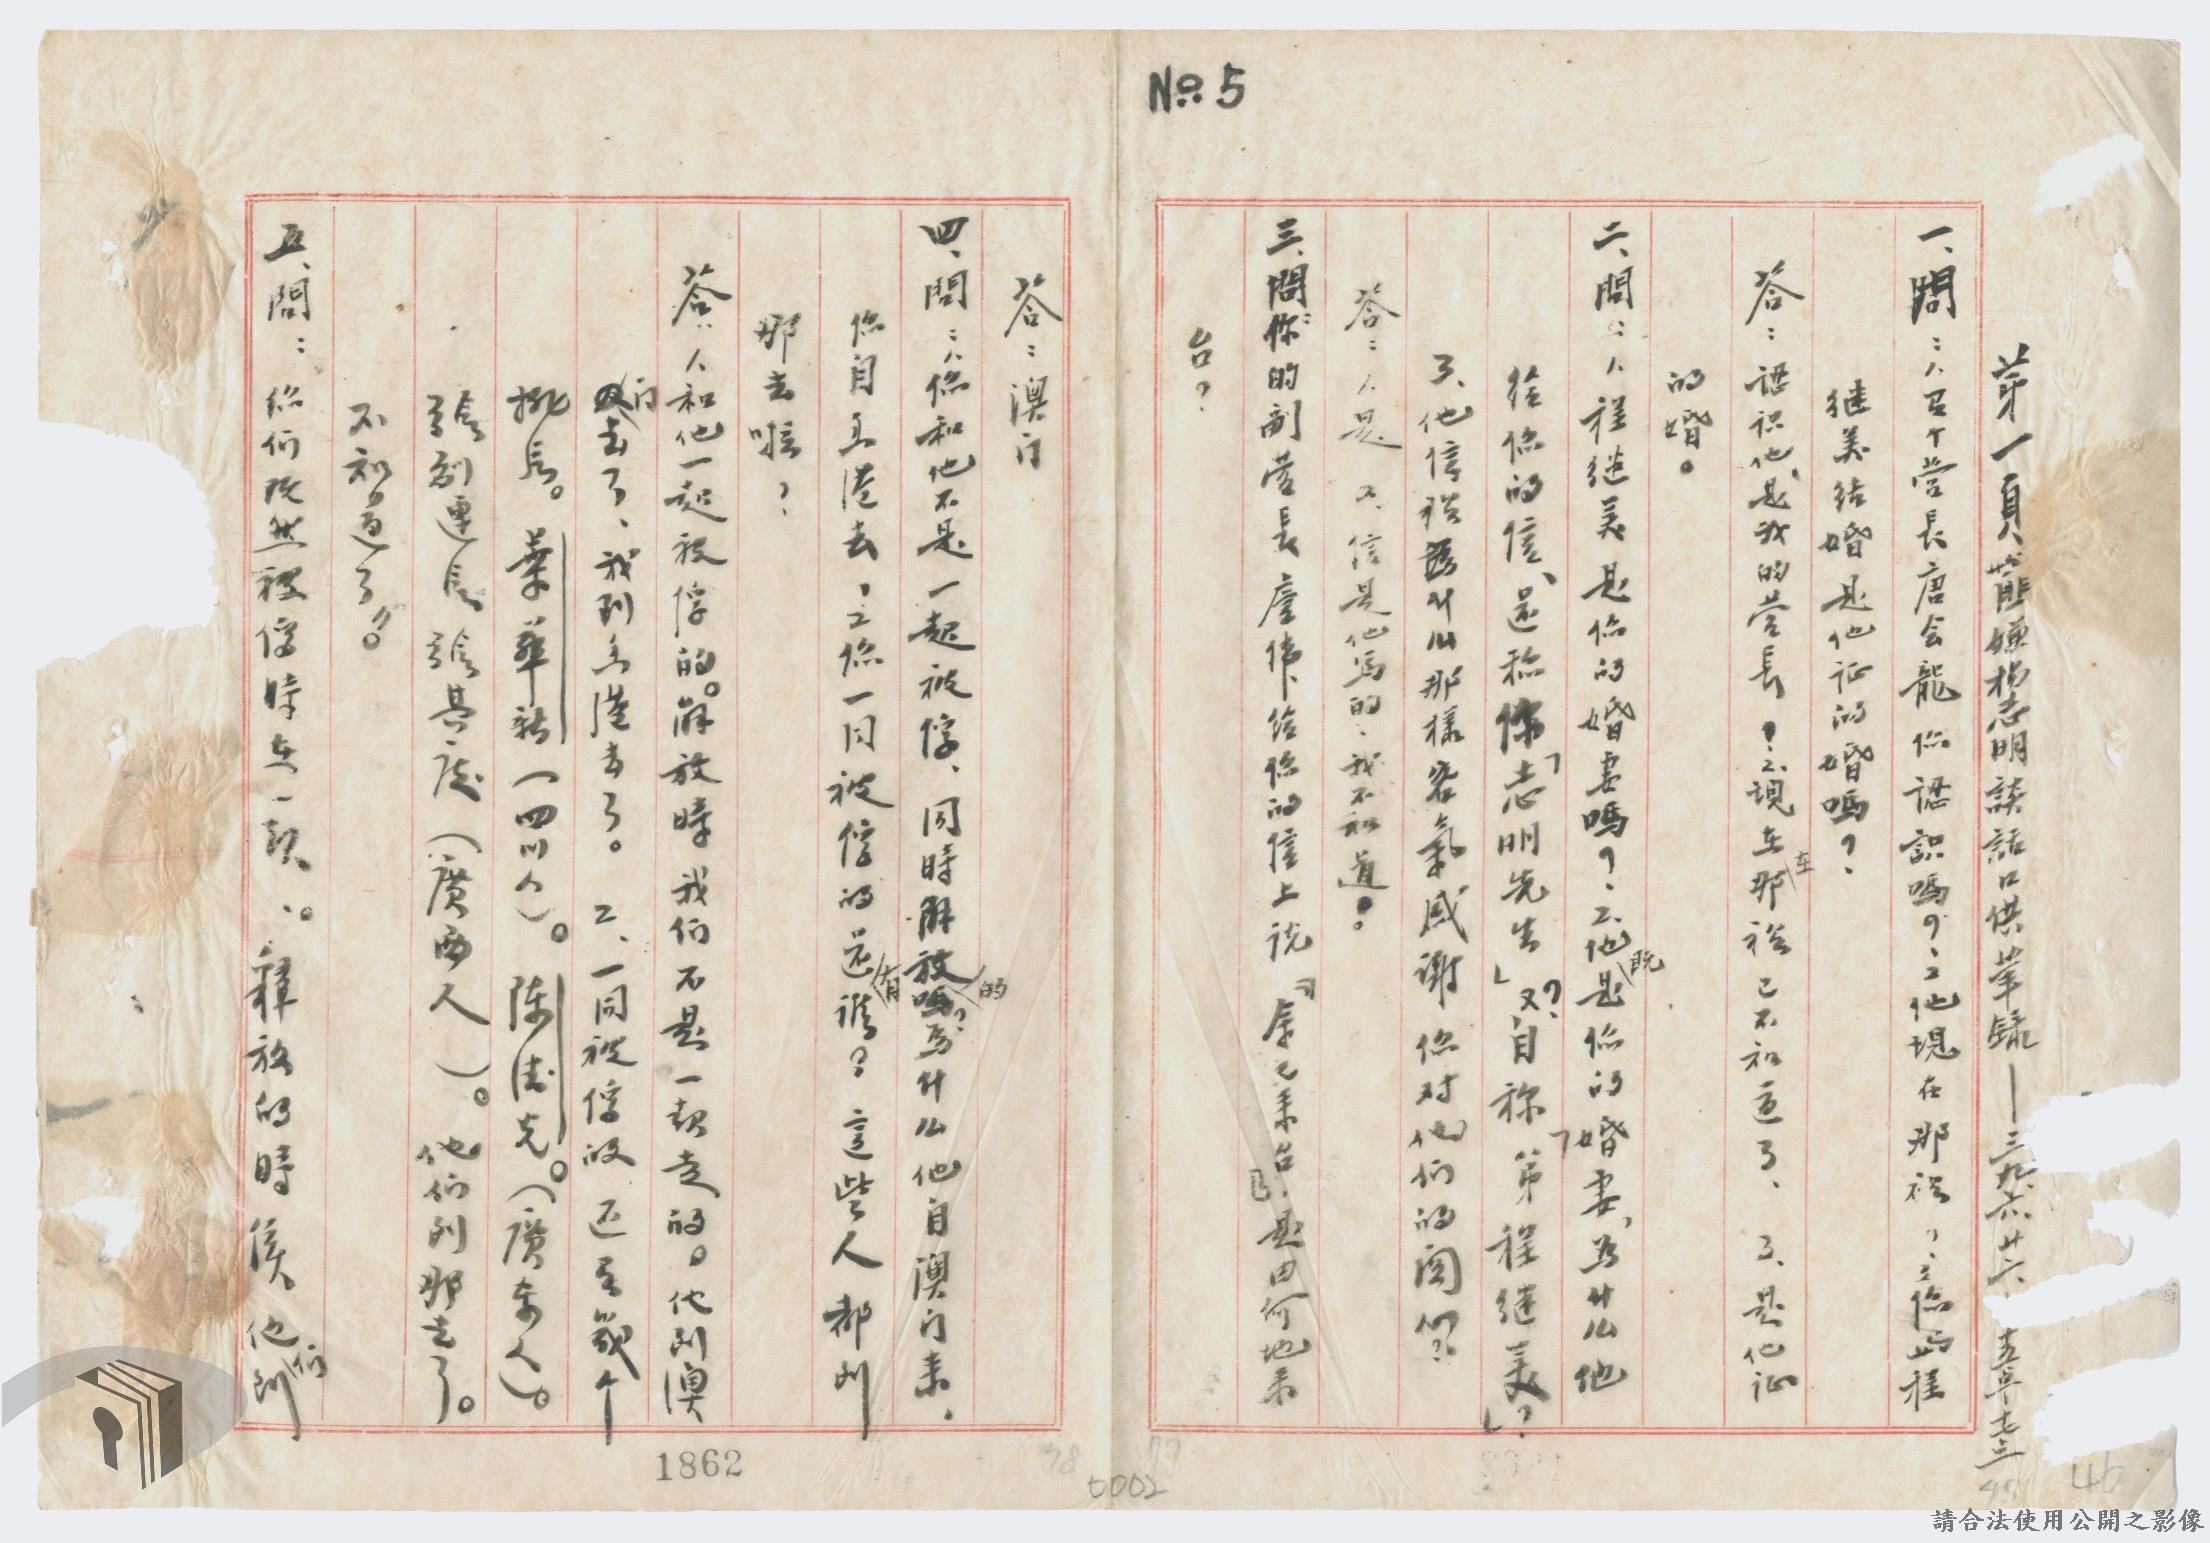 No. 5
第一頁 匪嫌楊志明談話口供筆錄——三九六廿六、
一、問：1.召个營長唐会龍你認識嗎？、2.他現在那裡？、3.你与程
継美結婚是他证的婚嗎？
答：認識他、是我的營長？2.現在在那裡已不知道了、3.是他证
的婚。
二、問：1.程継美是你的婚妻嗎？、2.他既是你的「婚妻、為什么他
给你的信、還称你「志明先生」又？自称第程継美」？
3、他信裡為什么那樣客氣感谢你对他们的関？
答：1.是 2.信是他写的、我不知道。
三、問：你的副营長詹偉给你的信上说『余已来台』是由何地来
台？
答：澳门
四、問：1.您和他不是一起被俘、同時解放的嗎？為什么他自澳门来、
你自香港去，2.你一同被俘的还有誰？這些人都到
那去啦？
答：1.和他一起被俘的。解放時我们不是一起走的。他到澳
门去了、我到香港去了。2、一同被俘的还有幾个
排長。葉華新（四川人）。陳法克。（廣东人）。
張副連長張其庭（廣西人）。他们到那去了。
不知道了。
五、問：你们既然被俘時在一起、。釋放的時候他们到
1862
t002
46
請合法使用公開之影像